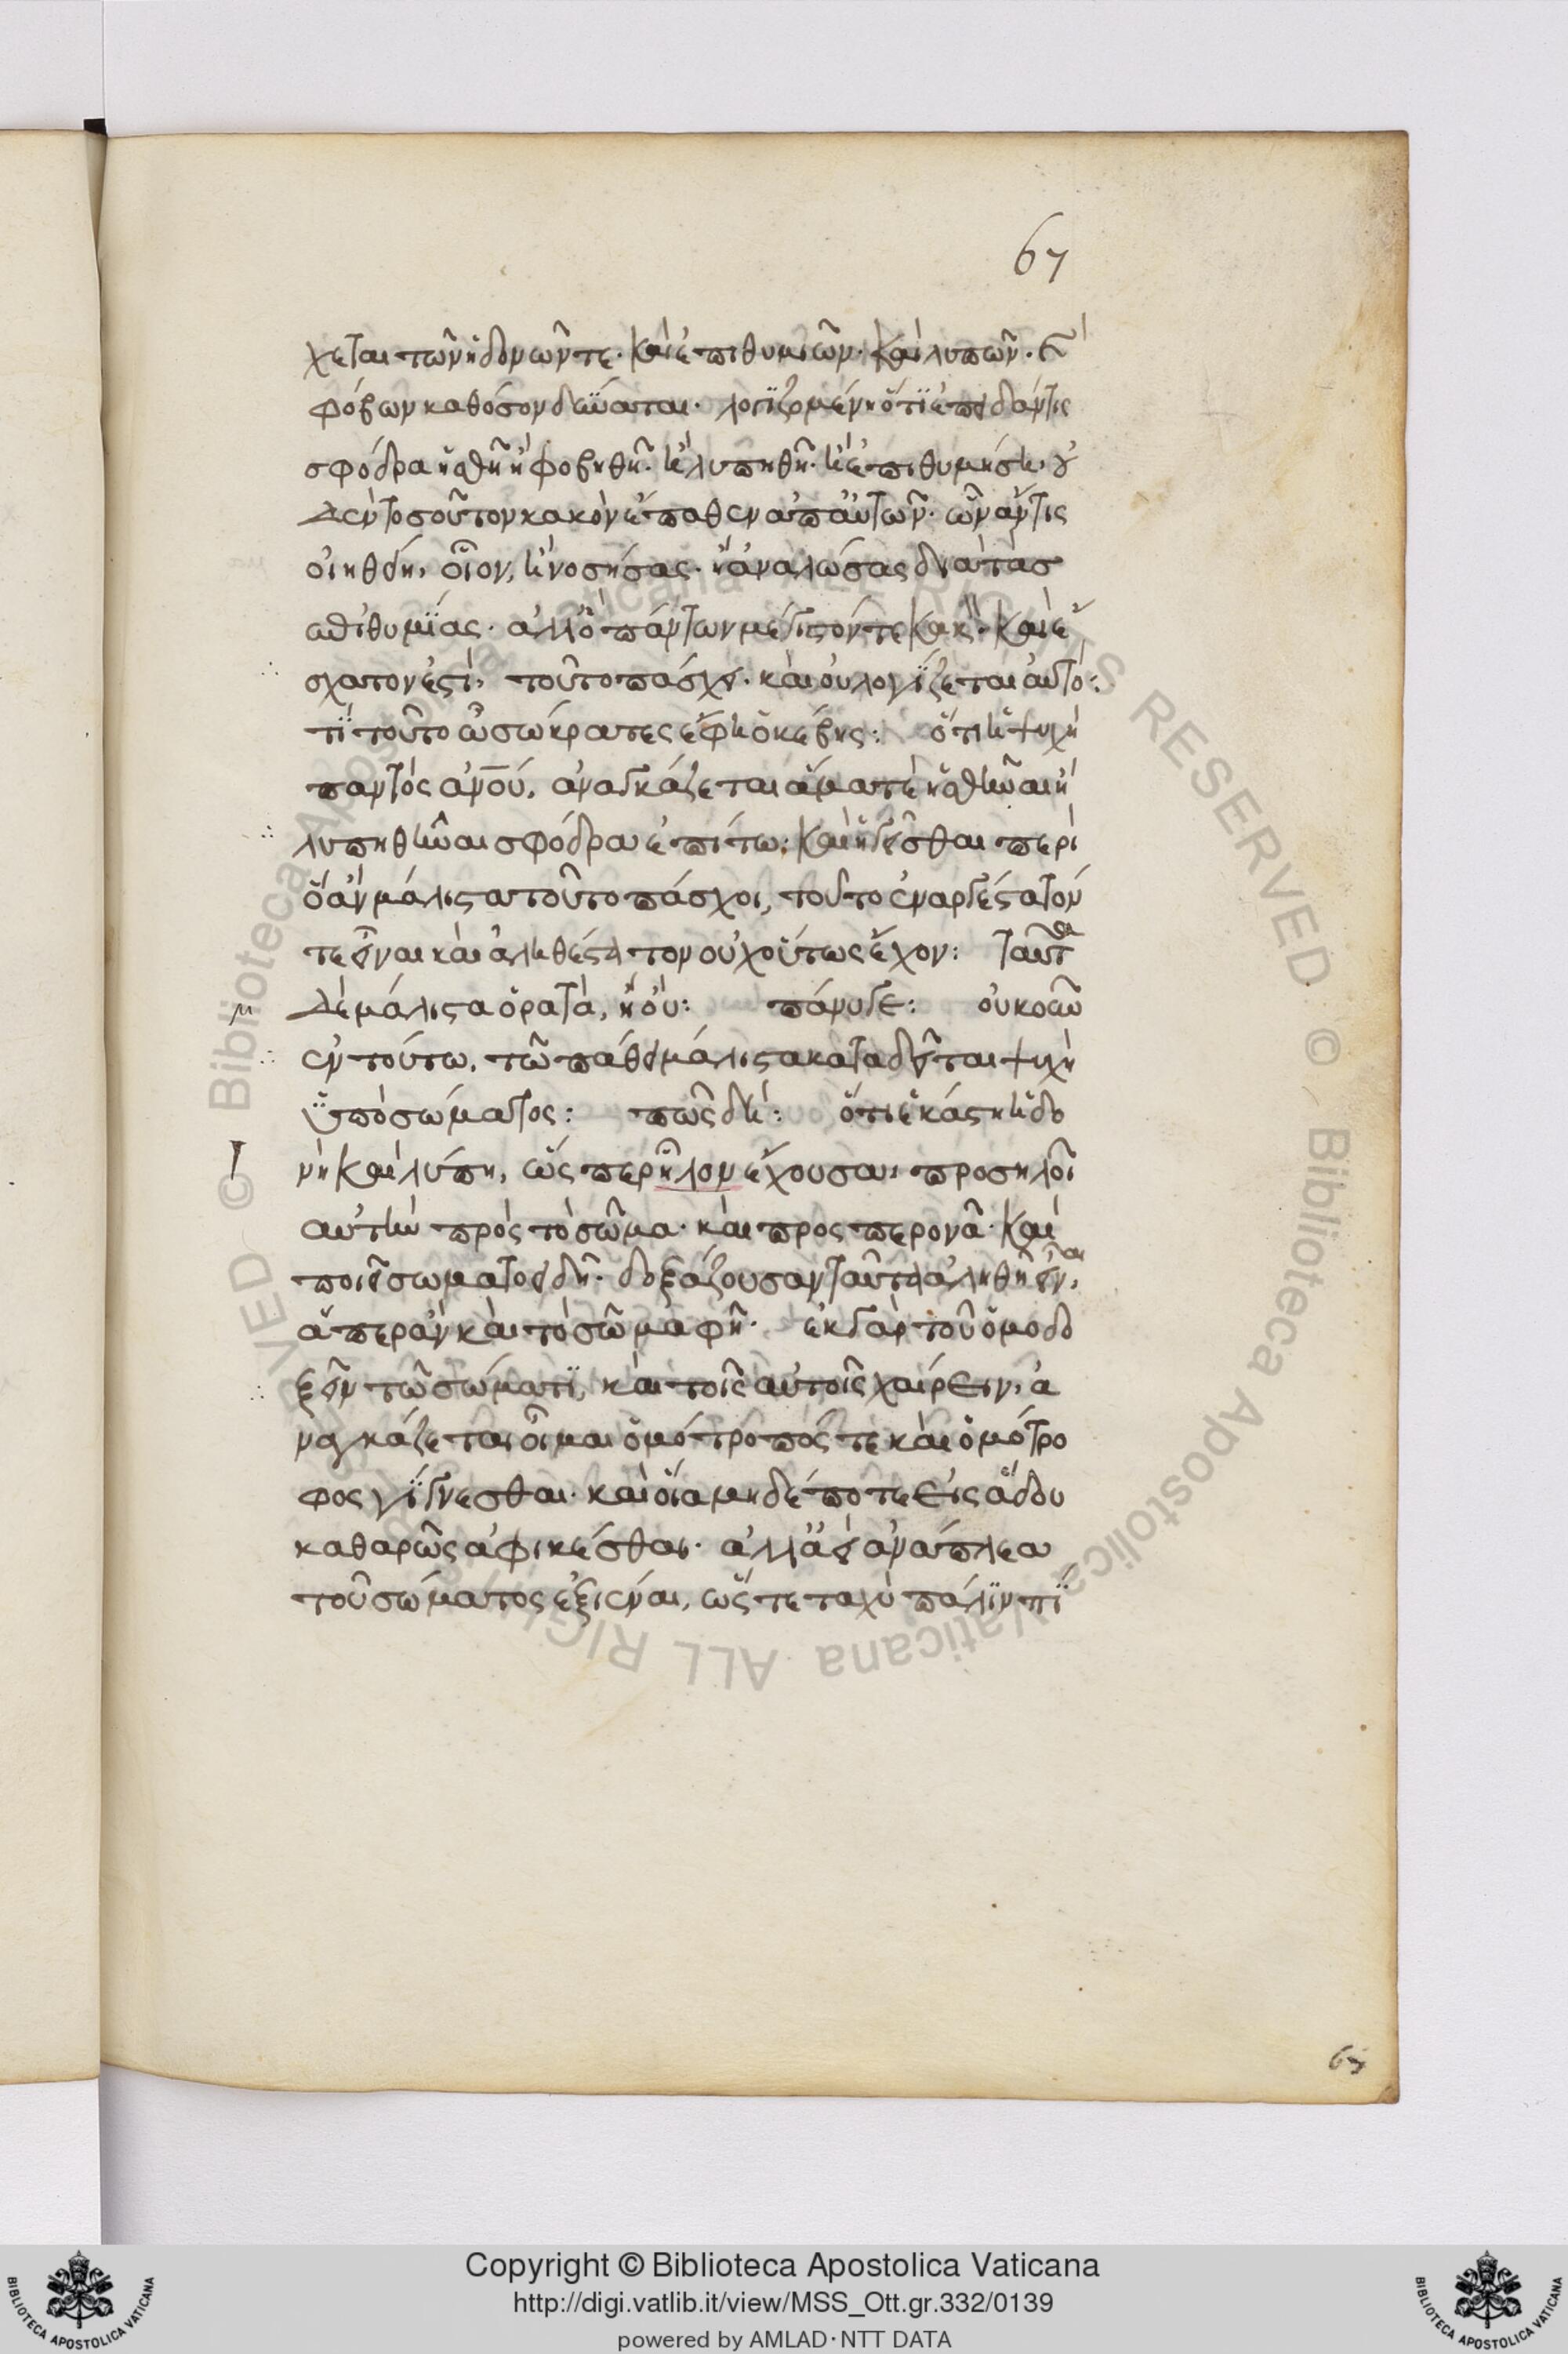 67
χεται τῶν ἡδονῶν τε· καὶ ἐπιθυμιῶν· καὶ λυπῶν· καὶ
φόβων καθόσον δύναται· λογιζομένη ὅτι ἐπειδάν τις
σφόδρα ἡσθῆ ἢ φοβηθῆ· ἢ λυπηθῆ· ἢ ἐπιθυμήση, οὐ
δὲν τοσοῦτον κακὸν ἔπαθεν ἀπ' αὐτῶν· ὧν ἄν τις
οἰηθείη, οἷον, ἢ νοσήσας· ἢ ἀναλώσας διὰ τὰς
ἐπιθυμίας· ἀλλ' ὃ πάντων μέγιστόν τε κακῶν· καὶ ἔ
σχατον ἐστὶ, τοῦτο πάσχει· καὶ οὐ λογίζεται αὐτό:
τί τοῦτο ὦ σώκρατες ἔφη ὁ κέβης: ὅτι ἡ ψυχὴ
παντὸς ἀνου, ἀναγκάζεται ἅμα τὲ ἡσθῆναι ἢ
λυπηθῆναι σφόδρα ἐπί τω: καὶ ἡγεῖσθαι περὶ
ὃ ἂν μάλιστα τοῦτο πάσχοι, τοῦτο ἐναργέστατόν
τε εἶναι καὶ ἀληθέστατον οὐχ οὕτως ἔχον: ταῦτα
δὲ μάλιστα ὁρατά, ἢ οὔ: πάνυ γε: οὐκοῦν
ἐν τούτω, τῶ πάθει μάλιστα καταδεῖται ψυχὴ
ὑπὸ σώματος: πῶς δή: ὅτι ἑκάστη ἡδο
νὴ καὶ λύπη, ὥσπερ ἧλον ἔχουσα, προσηλοῖ
αὐτὴν πρὸς τὸ σῶμα· καὶ προσπερονᾶ· καὶ
ποιεῖ σωματοειδῆ· δοξάζουσαν ταῦτα ἀληθῆ εἶναι,
ἅπερ ἂν καὶ τὸ σῶμα φῆ· ἐκ γὰρ τοῦ ὁμοδο
ξεῖν τῶ σώματι, καὶ τοῖς αὐτοῖς χαίρειν, ἀ
ναγκάζεται οἶμαι ὁμότροπός τε καὶ ὁμότρο
φος γίγνεσθαι· καὶ οἵα μηδέποτε εἰς ἅδου
καθαρῶς ἀφικέσθαι· ἀλλὰ ἀεὶ ἀνάπλεα
τοῦ σώματος ἐξιέναι, ὥστε ταχὺ πάλιν πί
Copyright © Biblioteca Apostolica Vaticana
http://digi.vatlib.it/view/MSS_Ott.gr.332/0139
powered by AMLAD·NTT DATA